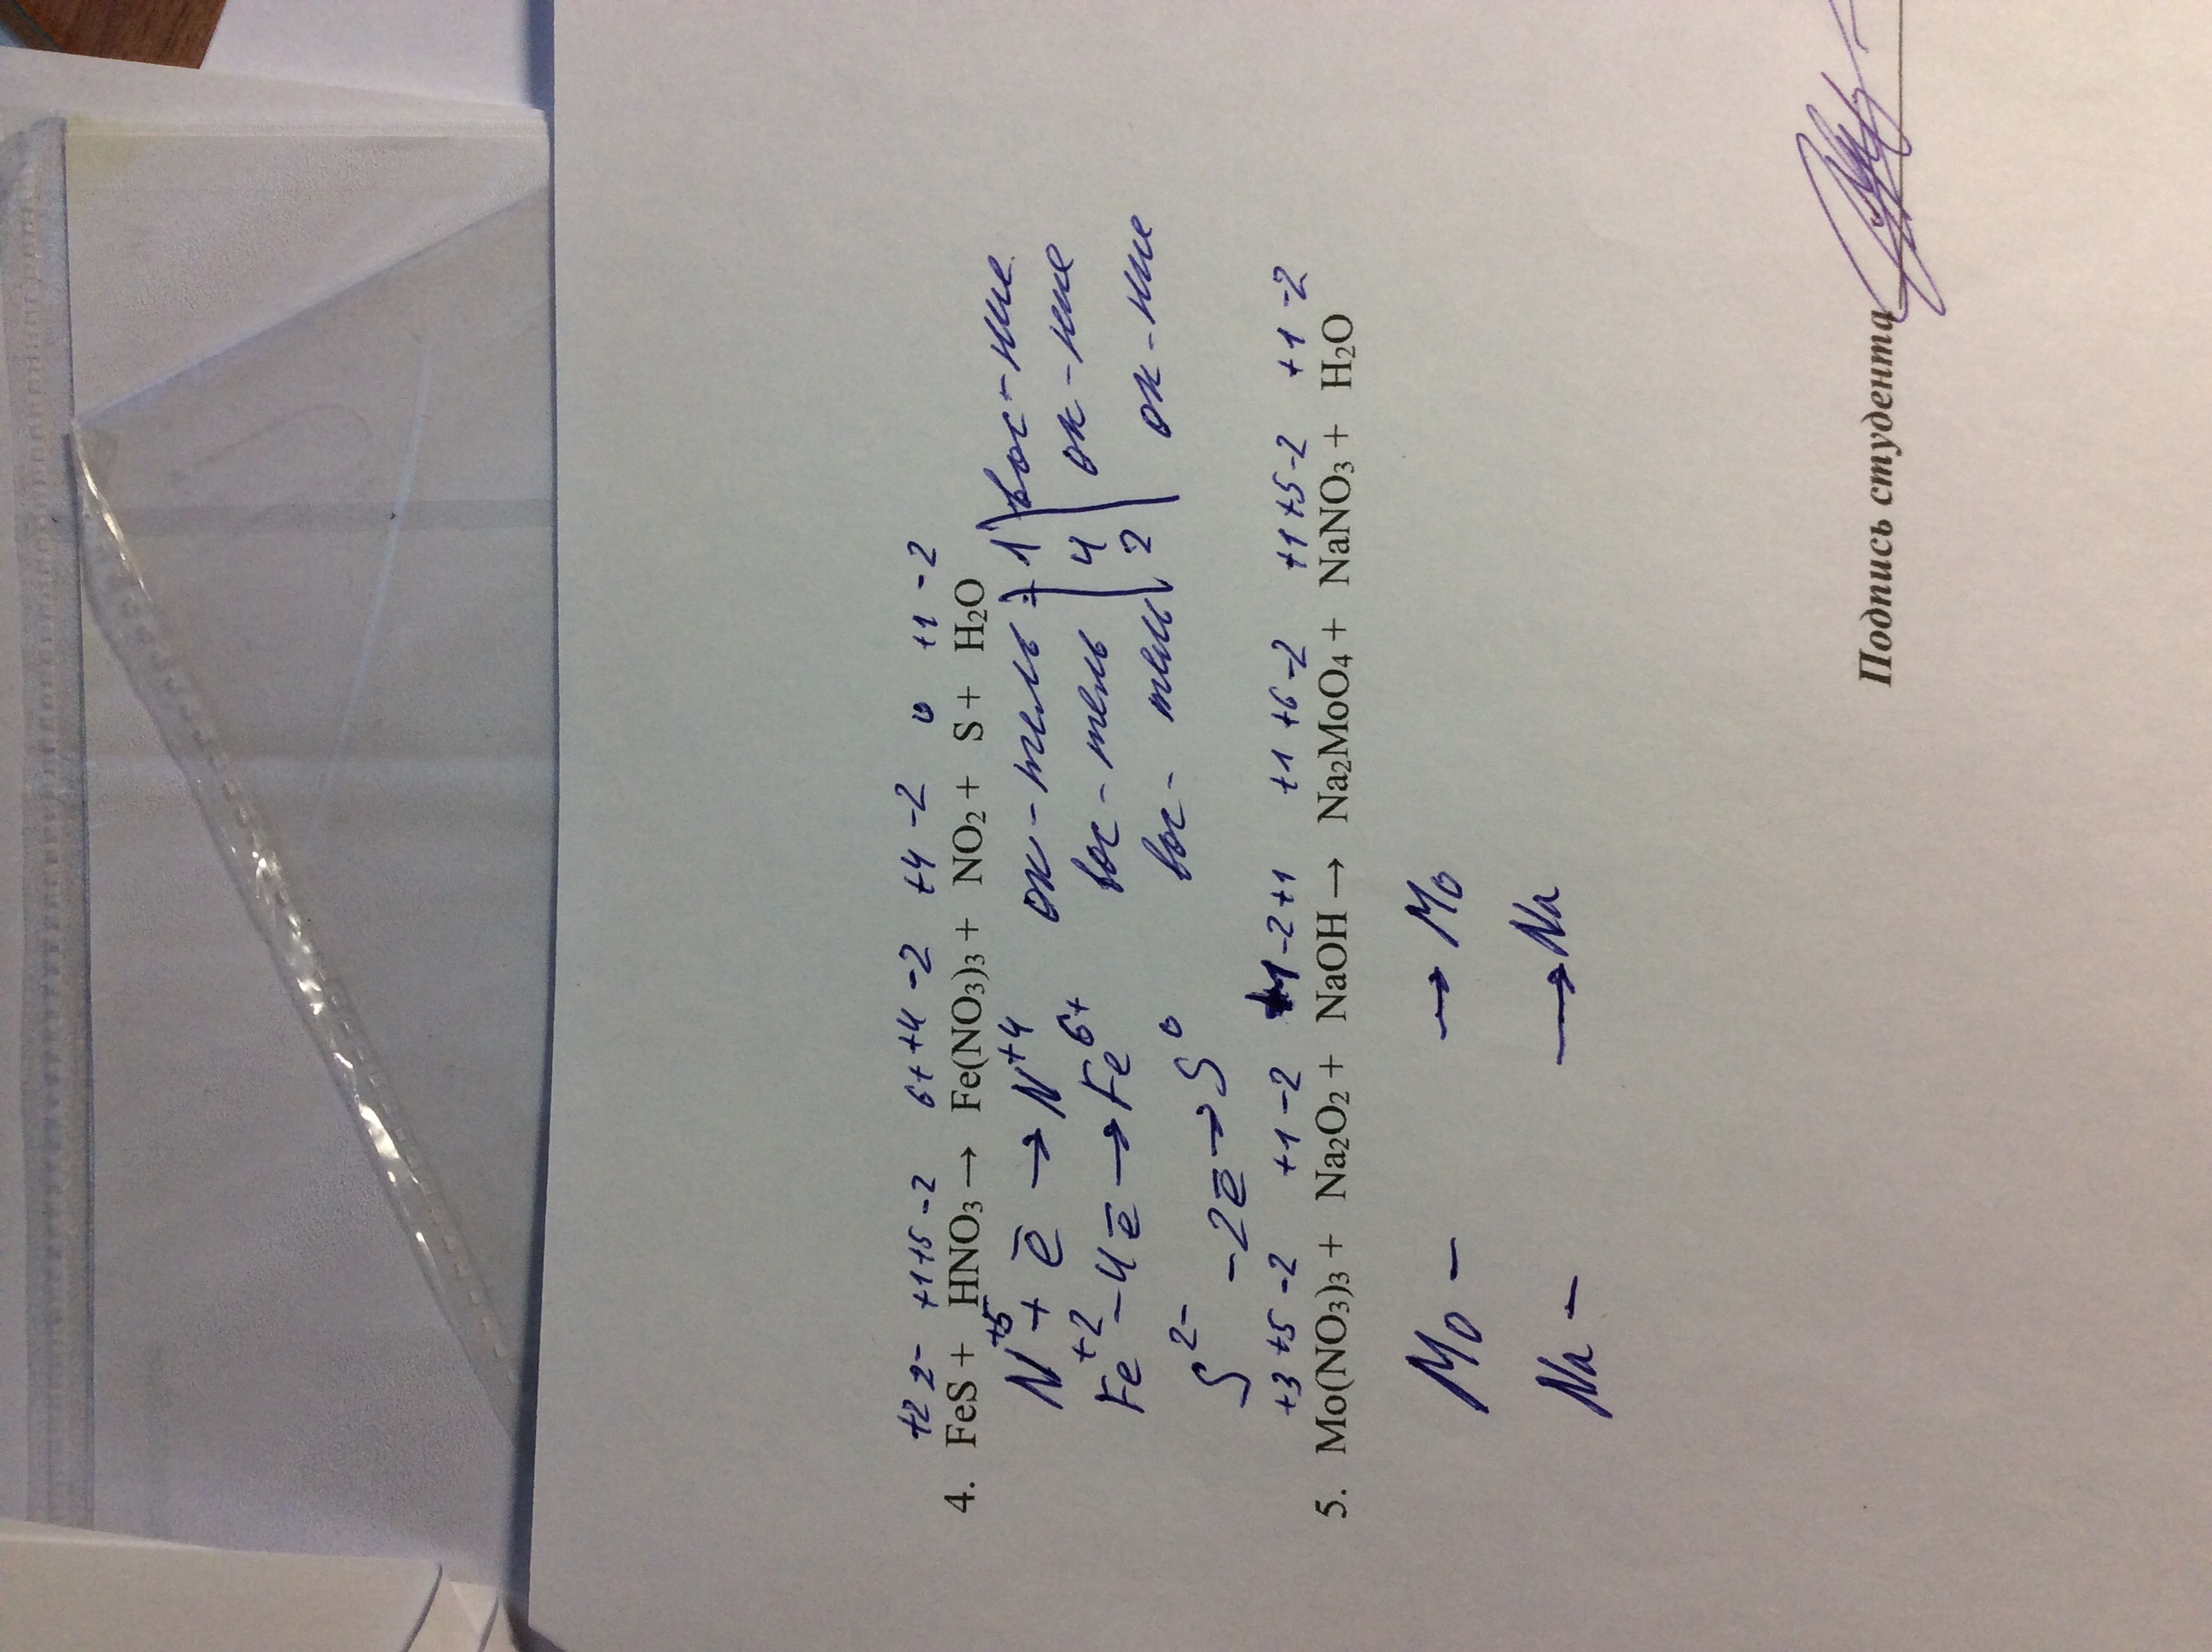 +2 2- +1+5-2 6+ +4 -2 +4 -2 0 +1 -2
4. FeS + HNO₃ → Fe(NO₃)₃ + NO₂ + S + H₂O
N⁺⁵ + ē → N⁺⁴ ок-тель 1 вос-ние
Fe⁺² - 4ē → Fe⁶⁺ вос-тель 4 ок-ние
S²⁻ - 2ē → S⁰ вос-тель 2 ок-ние
+3 +5 -2 +1 -2 +1 -2 +1 +1 +6 -2 +1 +5 -2 +1 -2
5. Mo(NO₃)₃ + Na₂O₂ + NaOH → Na₂MoO₄ + NaNO₃ + H₂O
Mo - → Mo
Na - → Na
Подпись студента